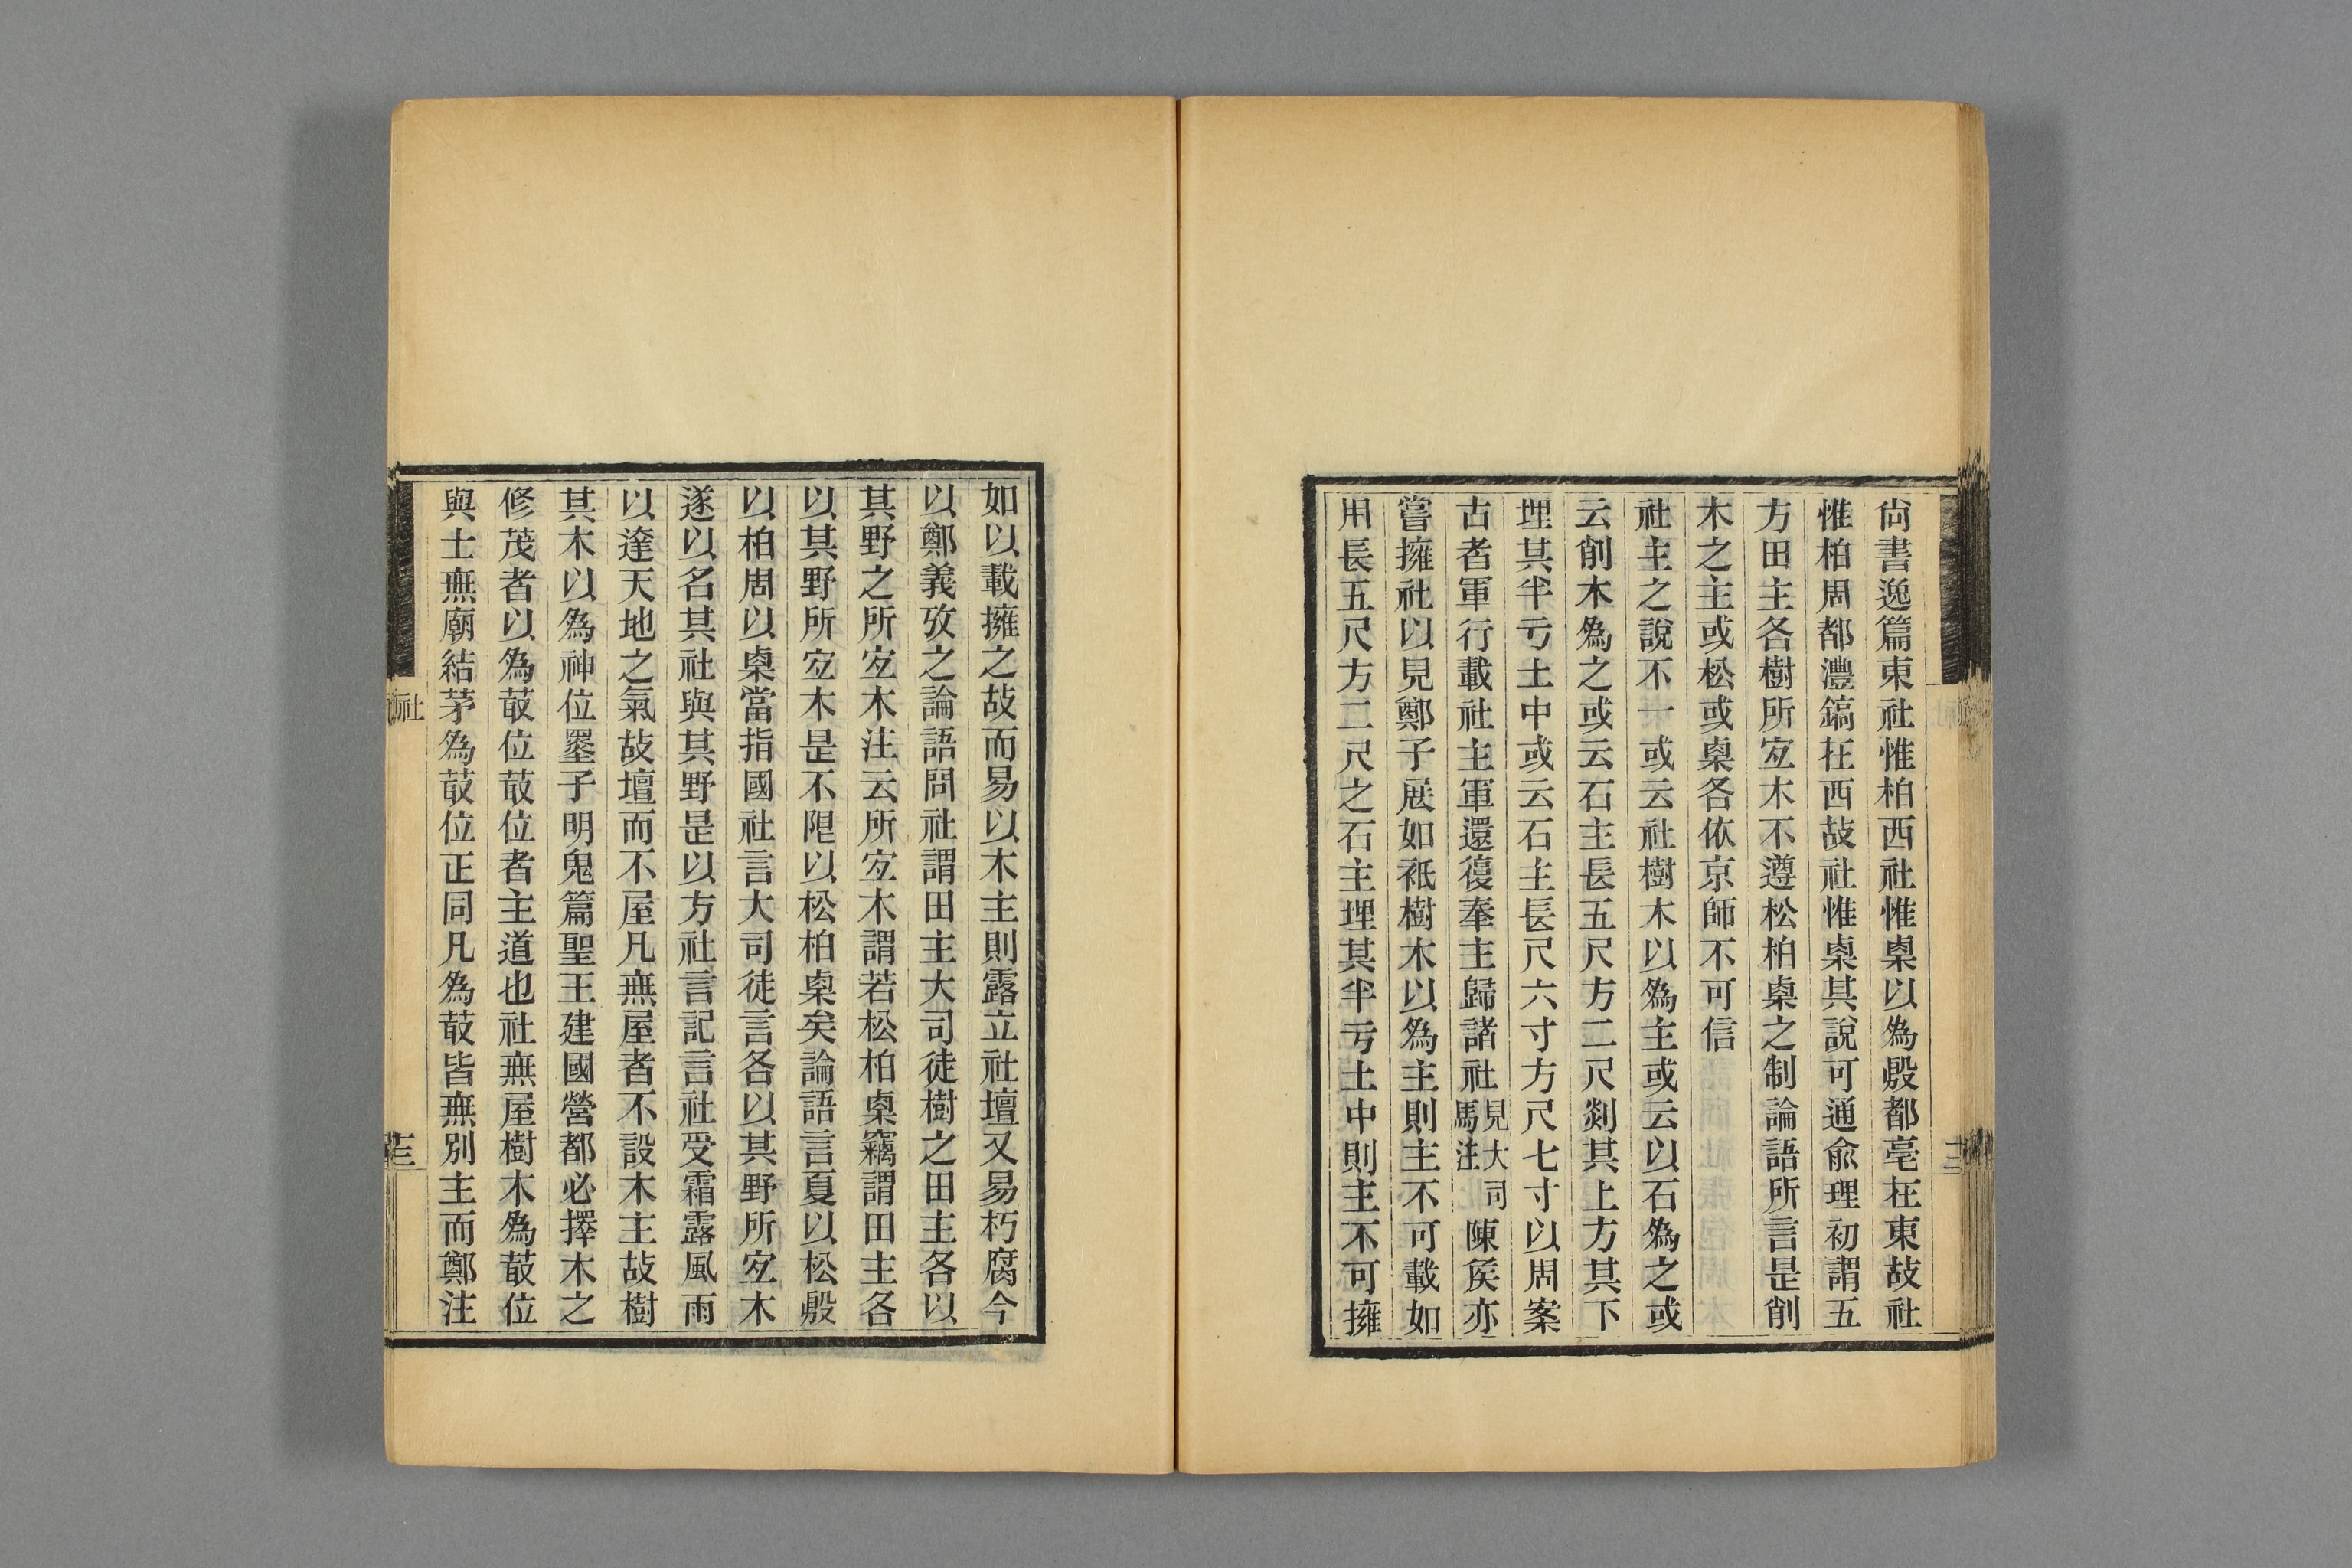 尙書逸篇東社惟柏西社惟㮚以爲殷都亳在東故社
惟柏周都灃鎬在西故社惟㮚其說可通俞理初謂五
方田主各樹所宐木不遵松柏㮚之制論語所言是削
木之主或松或㮚各依京師不可信
社主之說不一或云社樹木以爲主或云以石爲之或
云削木爲之或云石主長五尺方二尺剡其上方其下
埋其半亏土中或云石主長尺六寸方尺七寸以周案
古者軍行載社主軍還復奉主歸諸社見大司馬注陳矦亦
嘗擁社以見鄭子展如祇樹木以爲主則主不可載如
用長五尺方二尺之石主埋其半亏土中則主不可擁
十二
如以載擁之故而易以木主則露立社壇又易朽腐今
以鄭義攷之論語問社謂田主大司徒樹之田主各以
其野之所宐木注云所宐木謂若松柏㮚竊謂田主各
以其野所宐木是不限以松柏㮚矣論語言夏以松殷
以柏周以㮚當指國社言大司徒言各以其野所宐木
遂以名其社與其野是以方社言記言社受霜露風雨
以達天地之氣故壇而不屋凡無屋者不設木主故樹
其木以爲神位墨子明鬼篇聖王建國營都必擇木之
修茂者以爲菆位菆位者主道也社無屋樹木爲菆位
與士無廟結茅爲菆位正同凡爲菆皆無別主而鄭注
社
十三